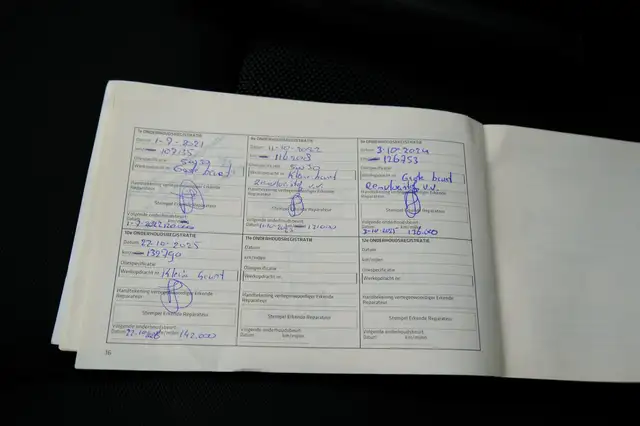 7e ONDERHOUDSREGISTRATIE
Datum 1-7-2021
km 107235
Oliespecificatie 5w30
Werkopdracht nr. Grote beurt
Handtekening vertegenwoordiger Erkende
Reparateur
Stempel Erkende Reparateur
Volgende onderhoudsbeurt
Datum km/mijlen
8e ONDERHOUDSREGISTRATIE
Datum 11-10-2022
km
Oliespecificatie 5w30
Werkopdracht nr. Klein beurt
Remvloeistof v.v.
Handtekening vertegenwoordiger Erkende
Reparateur
Stempel Erkende Reparateur
Volgende onderhoudsbeurt
Datum km/mijlen
9e ONDERHOUDSREGISTRATIE
Datum 3-10-2024
km 126753
Oliespecificatie
Werkopdracht nr. Grote beurt
Remvloeistof v.v.
Handtekening vertegenwoordiger Erkende
Reparateur
Stempel Erkende Reparateur
Volgende onderhoudsbeurt
Datum km/mijlen
10e ONDERHOUDSREGISTRATIE
Datum 22-10-2025
km 132790
Oliespecificatie
Werkopdracht nr. Klein beurt
Handtekening vertegenwoordiger Erkende
Reparateur
Stempel Erkende Reparateur
Volgende onderhoudsbeurt
Datum km/mijlen 142.000
11e ONDERHOUDSREGISTRATIE
Datum
km/mijlen
Oliespecificatie
Werkopdracht nr.
Handtekening vertegenwoordiger Erkende
Reparateur
Stempel Erkende Reparateur
Volgende onderhoudsbeurt
Datum km/mijlen
12e ONDERHOUDSREGISTRATIE
Datum
km/mijlen
Oliespecificatie
Werkopdracht nr.
Handtekening vertegenwoordiger Erkende
Reparateur
Stempel Erkende Reparateur
Volgende onderhoudsbeurt
Datum km/mijlen
16